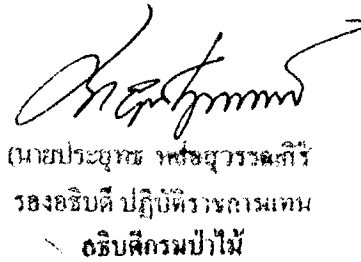 (นายประยุทธ หล่อสุวรรณศิริ
รองอธิบดี ปฏิบัติราชการแทน
อธิบดีกรมป่าไม้